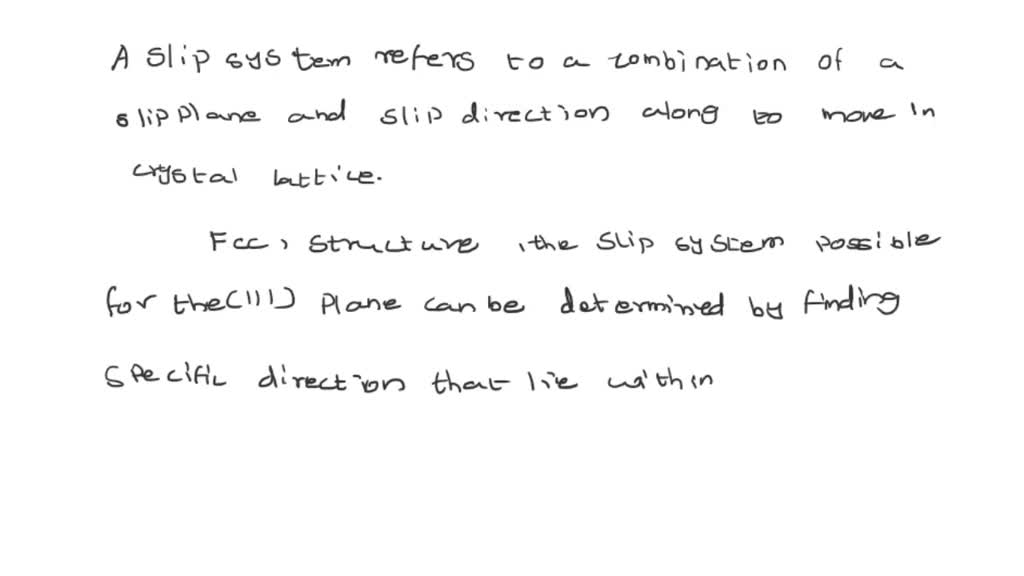 A slip system refers to a combination of a
slip plane and slip direction along to move in
crystal lattice.
Fcc, structure, the slip system possible
for the (111) plane can be determined by finding
specific direction that lie within